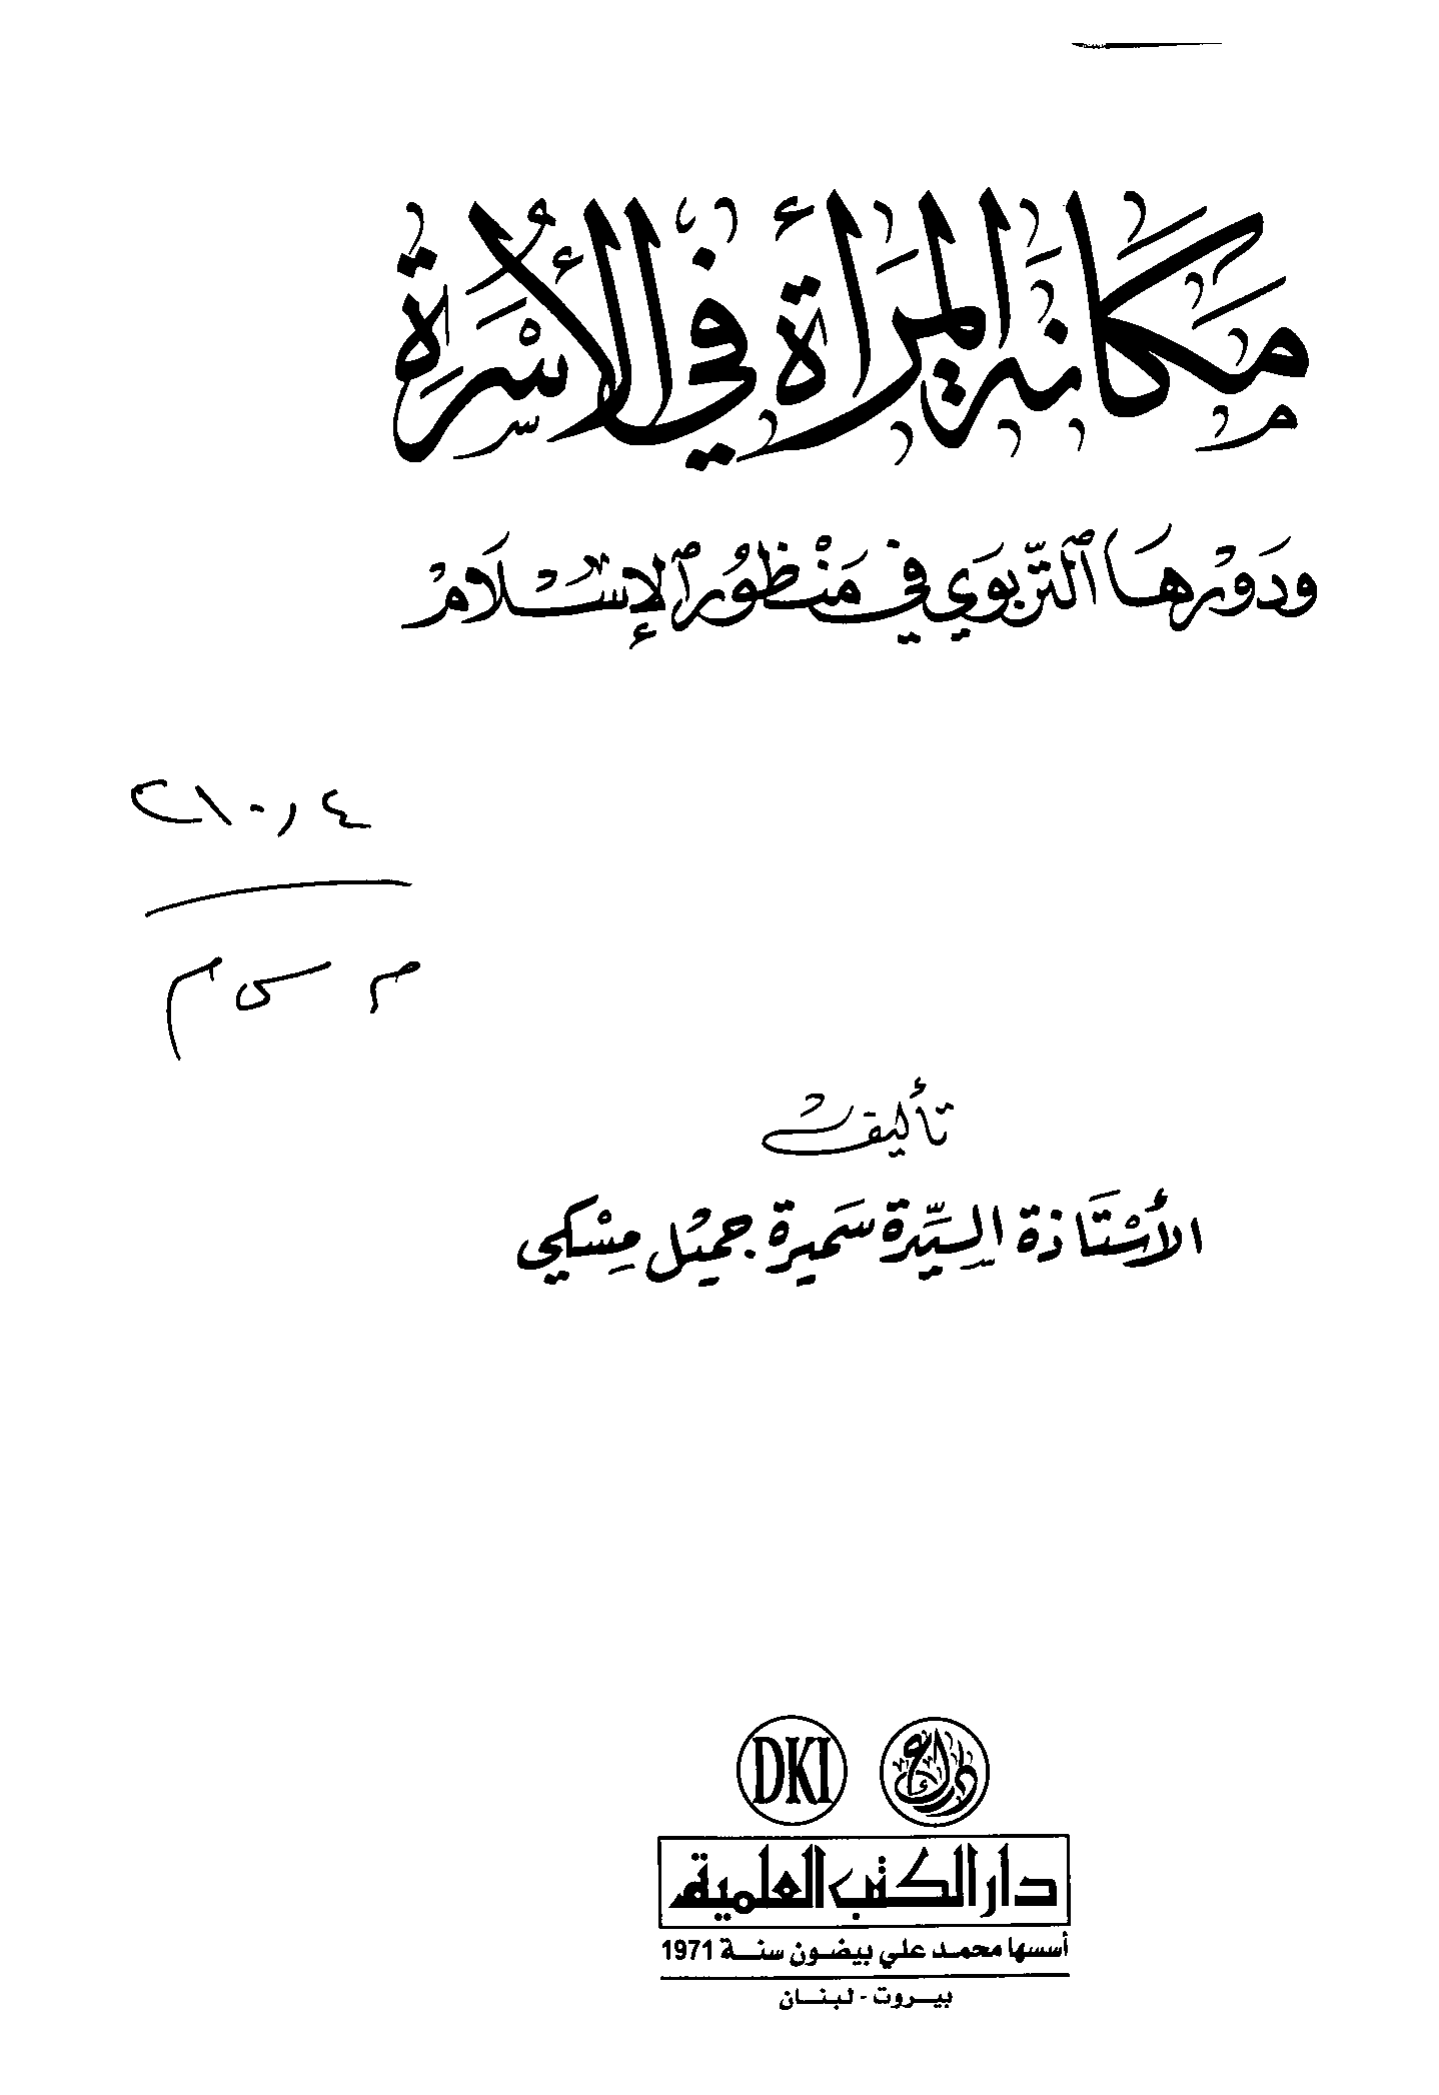 مَكَانَةُ المَرْأَةِ فِي الأُسْرَةِ
وَدَوْرُهَا ٱلتَّرْبَوِي فِي مَنْظُورِ ٱلْإِسْلَام
٢١٠,٤
م س م
تأليف
الأُسْتَاذَة السَّيِّدَة سَمِيرَة جَمِيْل مِسْكِي
DKI
دار الكتب العلمية
أسسها محمد علي بيضون سنة 1971
بيروت - لبنان